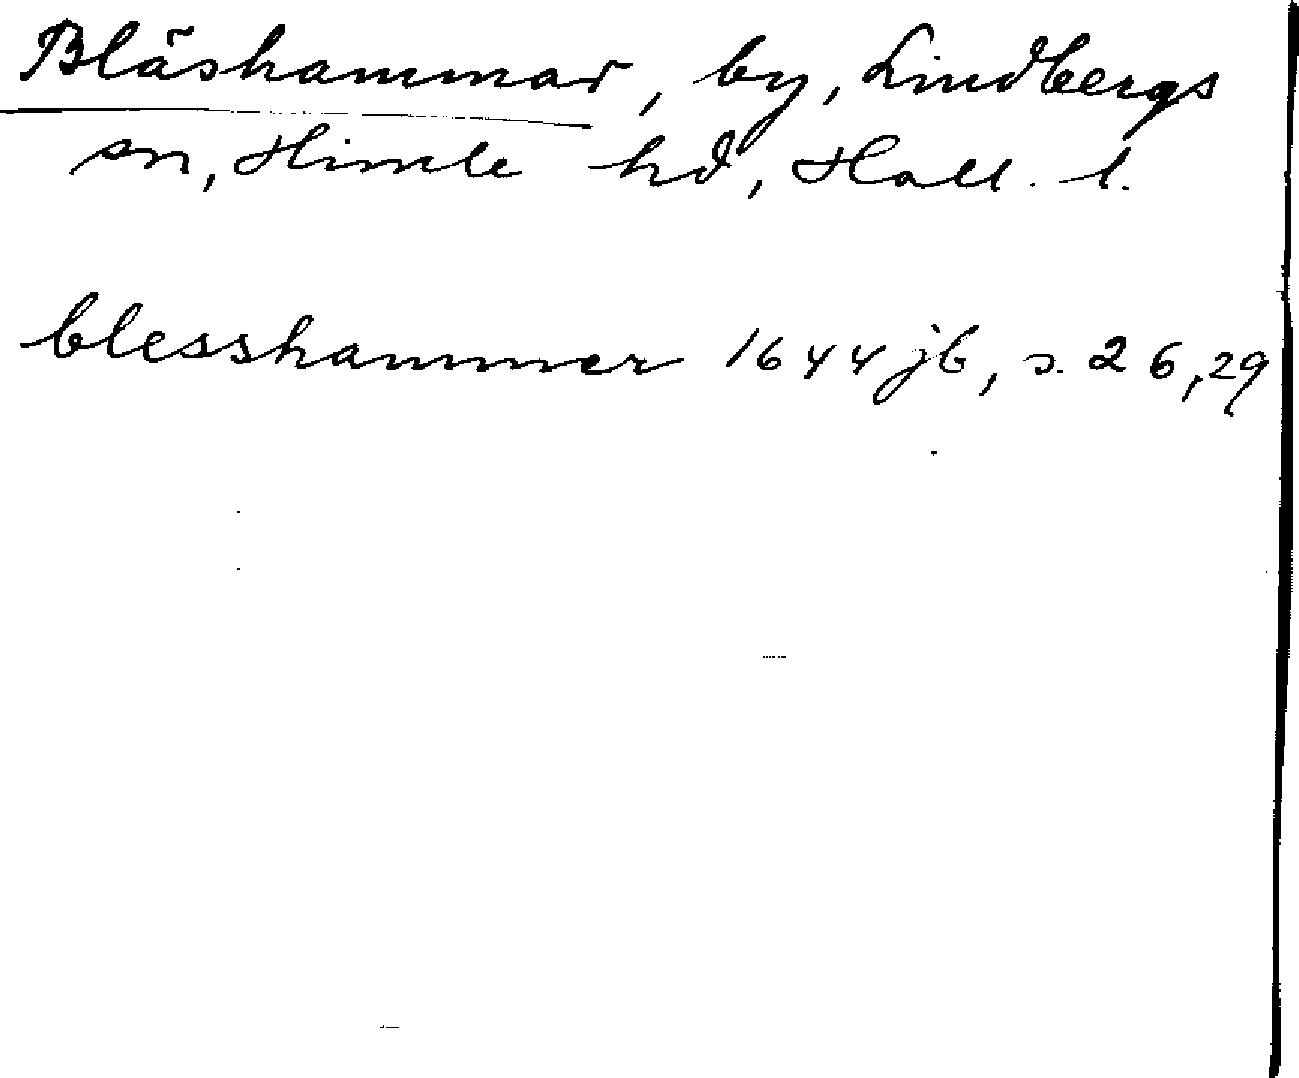 Bläshammar, by, Lindbergs
sn, Himle hd, Hall. l.
blesshammer 1644 jb, s. 26, 29